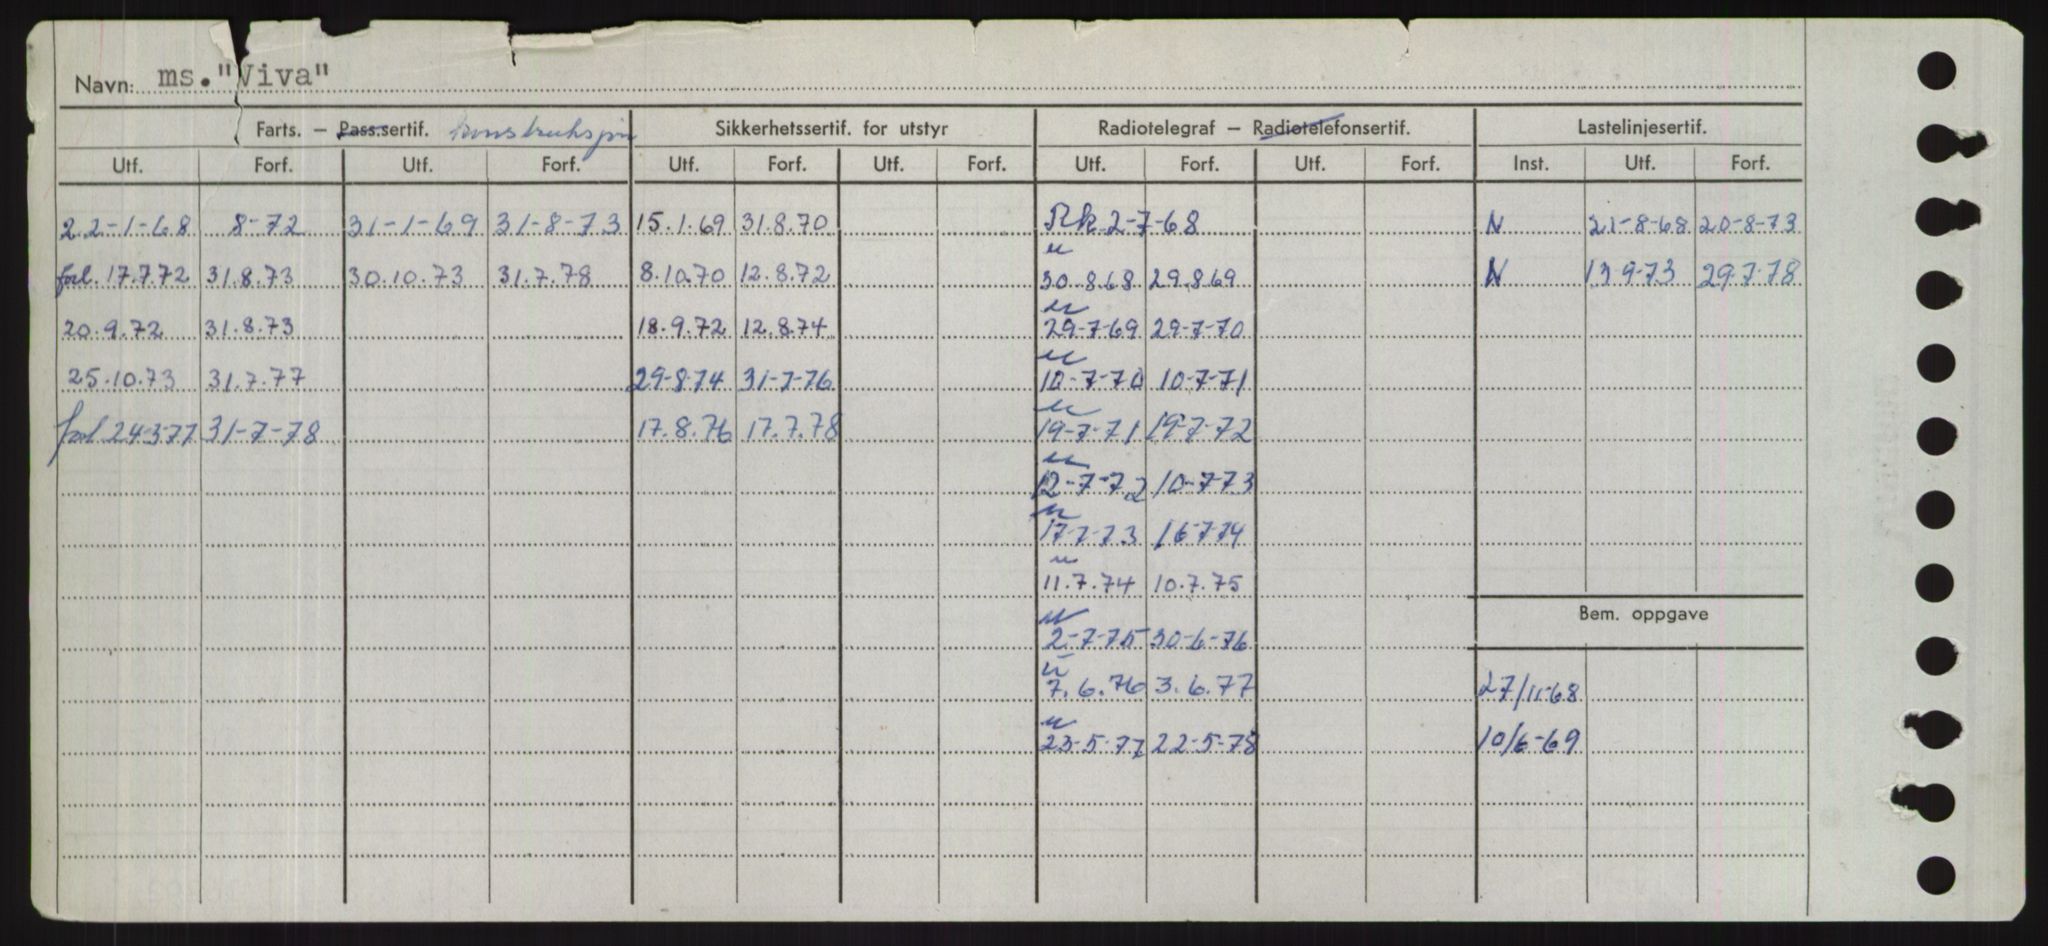 Navn: ms. "Viva"
Farts. – Pass.sertif. konstruksjon Sikkerhetssertif. for utstyr Radiotelegraf – Radiotelefonsertif. Lastelinjesertif.
Utf. Forf. Utf. Forf. Utf. Forf. Utf. Forf. Utf. Forf. Utf. Forf. Inst. Utf. Forf.
22-1-68 8-72 31-1-69 31-8-73 15.1.69 31.8.70 Rk 2-7-68 N 21-8-68 20-8-73
"
forl. 17.7.72 31.8.73 30.10.73 31.7.78 8.10.70 12.8.72 30.8.68 29.8.69 N 13-9-73 29-7-78
"
20.9.72 31.8.73 18.9.72 12.8.74 29-7-69 29-7-70
"
25.10.73 31.7.77 29-8-74 31-7-76 10-7-70 10-7-71
"
forl 24-3-77 31-7-78 17.8.76 17.7.78 19-7-71 19-7-72
"
12-7-72 10-7-73
"
17-7-73 16-7-74
"
11.7.74 10.7.75
Bem. oppgave
"
2-7-75 30-6-76
"
7.6.76 3.6.77 27/11-68
"
23-5-77 22-5-78 10/6-69